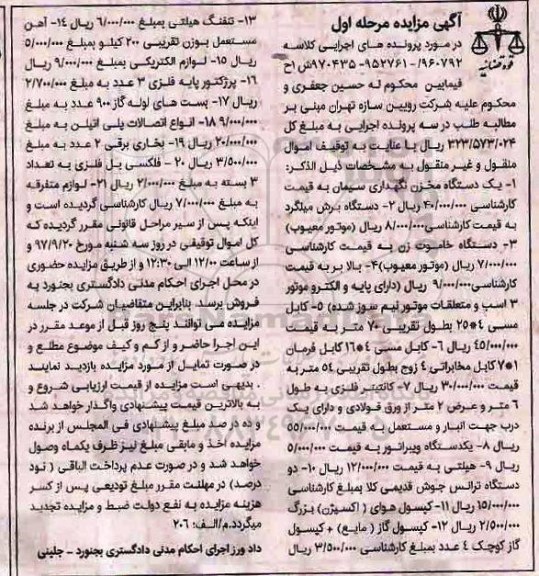 آگهی مزایده مرحله اول
در مورد پرونده های اجرایی کلاسه
۹۶۰۷۹۲/- ۹۵۲۷۶۱-۹۷۰۴۳۵ش اح
فیمابین محکوم له حسین جعفری و
محکوم علیه شرکت رویین سازه تهران مبنی بر
مطالبه طلب در سه پرونده اجرایی به مبلغ کل
۳۲۳/۵۷۳/۰۲۴ ریال با عنایت به توقیف اموال
منقول و غیر منقول به مشخصات ذیل الذکر:
۱- یک دستگاه مخزن نگهداری سیمان به قیمت
کارشناسی ۴۰/۰۰۰/۰۰۰ ریال ۲- دستگاه برش میلگرد
به قیمت کارشناسی۸/۰۰۰/۰۰۰ ریال (موتور معیوب)
۳- دستگاه خاموت زن به قیمت کارشناسی
۷/۰۰۰/۰۰۰ ریال (موتور معیوب)۴- بالا بر به قیمت
کارشناسی۹/۰۰۰/۰۰۰ ریال (دارای پایه و الکترو موتور
۳ اسب و متعلقات موتور نیم سوز شده) ۵- کابل
مسی ۴*۲۵ بطول تقریبی ۷۰ متر به قیمت
۴۵/۰۰۰/۰۰۰ ریال ۶- کابل مسی ۴*۱۶ کابل فرمان
۱*۷ کابل مخابراتی ۴ زوج بطول تقریبی ۵۴ متر به
قیمت ۳۰/۰۰۰/۰۰۰ ریال ۷- کانتینر فلزی به طول
۶ متر و عرض ۲ متر از ورق فولادی و دارای یک
درب جهت انبار و مستعمل به قیمت ۵۵/۰۰۰/۰۰۰
ریال ۸- یکدستگاه ویبراتور به قیمت ۵/۰۰۰/۰۰۰
ریال ۹- هیلتی به قیمت ۱۲/۰۰۰/۰۰۰ ریال ۱۰- دو
دستگاه ترانس جوش قدیمی کلا بمبلغ کارشناسی
۱۵/۰۰۰/۰۰۰ ریال ۱۱- کپسول هوای ( اکسیژن) بزرگ
۲/۵۰۰/۰۰۰ ریال ۱۲- کپسول گاز ( مایع) + کپسول
گاز کوچک ۴ عدد بمبلغ کارشناسی ۳/۵۰۰/۰۰۰ ریال
۱۳- تفنگ هیلتی بمبلغ ۶/۰۰۰/۰۰۰ ریال ۱۴- آهن
مستعمل بوزن تقریبی ۲۰۰ کیلو بمبلغ ۵/۰۰۰/۰۰۰
ریال ۱۵- لوازم الکتریکی بمبلغ ۹/۰۰۰/۰۰۰ ریال
۱۶- پرژکتور پایه فلزی ۳ عدد به مبلغ ۲/۷۰۰/۰۰۰
ریال ۱۷- بست های لوله گاز ۹۰۰ عدد به مبلغ
۹/۰۰۰/۰۰۰ ۱۸- انواع اتصالات پلی اتیلن به مبلغ
۲۰/۰۰۰/۰۰۰ ریال ۱۹- بخاری برقی ۲ عدد به مبلغ
۳/۵۰۰/۰۰۰ ریال ۲۰- فلکسی بل فلزی به تعداد
۳ بسته به مبلغ ۲/۰۰۰/۰۰۰ ریال ۲۱- لوازم متفرقه
به مبلغ ۷/۰۰۰/۰۰۰ ریال کارشناسی گردیده است و
اینکه پس از سیر مراحل قانونی مقرر گردیده که
کل اموال توقیفی در روز سه شنبه مورخ ۹۷/۹/۲۰
از ساعت ۱۲/۰۰ الی ۱۲:۳۰ و از طریق مزایده حضوری
در محل اجرای احکام مدنی دادگستری بجنورد به
فروش برسد. بنابراین متقاضیان شرکت در جلسه
مزایده می توانند پنج روز قبل از موعد مقرر در
این اجرا حاضر و از کم و کیف موضوع مطلع و
در صورت تمایل از مورد مزایده بازدید نمایند
. بدیهی است مزایده از قیمت ارزیابی شروع و
به بالاترین قیمت پیشنهادی واگذار خواهد شد
و ده در صد مبلغ پیشنهادی فی المجلس از برنده
مزایده اخذ و مابقی مبلغ نیز ظرف یکماه وصول
خواهد شد و در صورت عدم پرداخت الباقی ( نود
درصد) در مهلت مقرر مبلغ تودیعی پس از کسر
هزینه مزایده به نفع دولت ضبط و مزایده تجدید
میگردد.م/الف: ۲۰۶
داد ورز اجرای احکام مدنی دادگستری بجنورد - جلینی